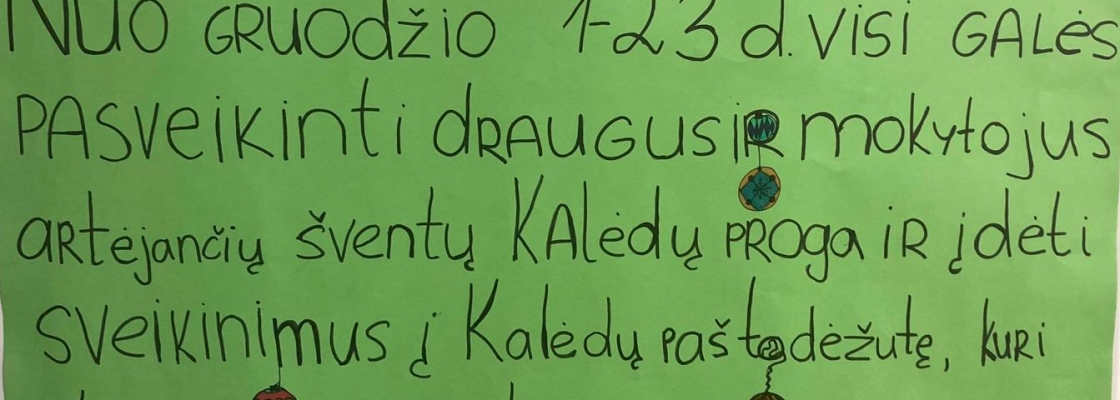 NUO GRUODžiO 1-23 d. VISI GALėS
PASVeiKinti dRAUGUS iR mokytojus
aRtėjančių šventų KAlėdų PROga iR įdėti
SVeiKinimus į Kalėdų pašto dėžutę, kuRi